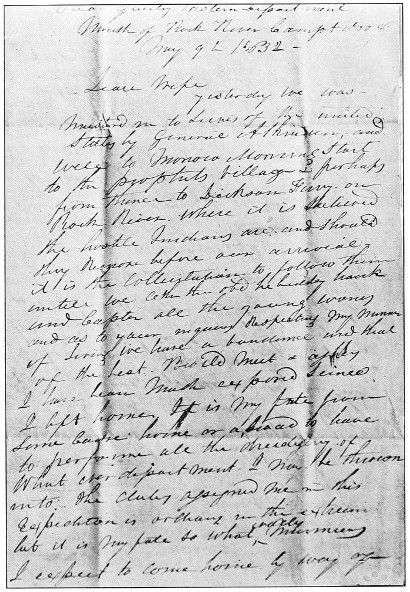 Mouth of Rock River Camp
May 9th 1832 —
Deare Wife
yesterday we was
Mustard in to Serves of the united
States by General Atkinson, and
will to Morrow Morning Start
to the prophets village & perhaps
from thence to Dicksons Ferry on
Rock River where it is believed
the hostle Indians are and should
they Remove before our arrival
it is the to follow them
untill we the old hawk
and Captor all the young
and as to your inquiry Respecting My Manner
of Living we have a bundence and that
of the best. Broild Meet &
I have bean Much expord Since
I left home, It is My fate from
Some Cause home or abroad to have
to performe all the of
What ever department I May be thrown
into. the duty assigned me in this
Expedition is in the extream
but it is My fate So what Murmers
I expect to Come home by way of